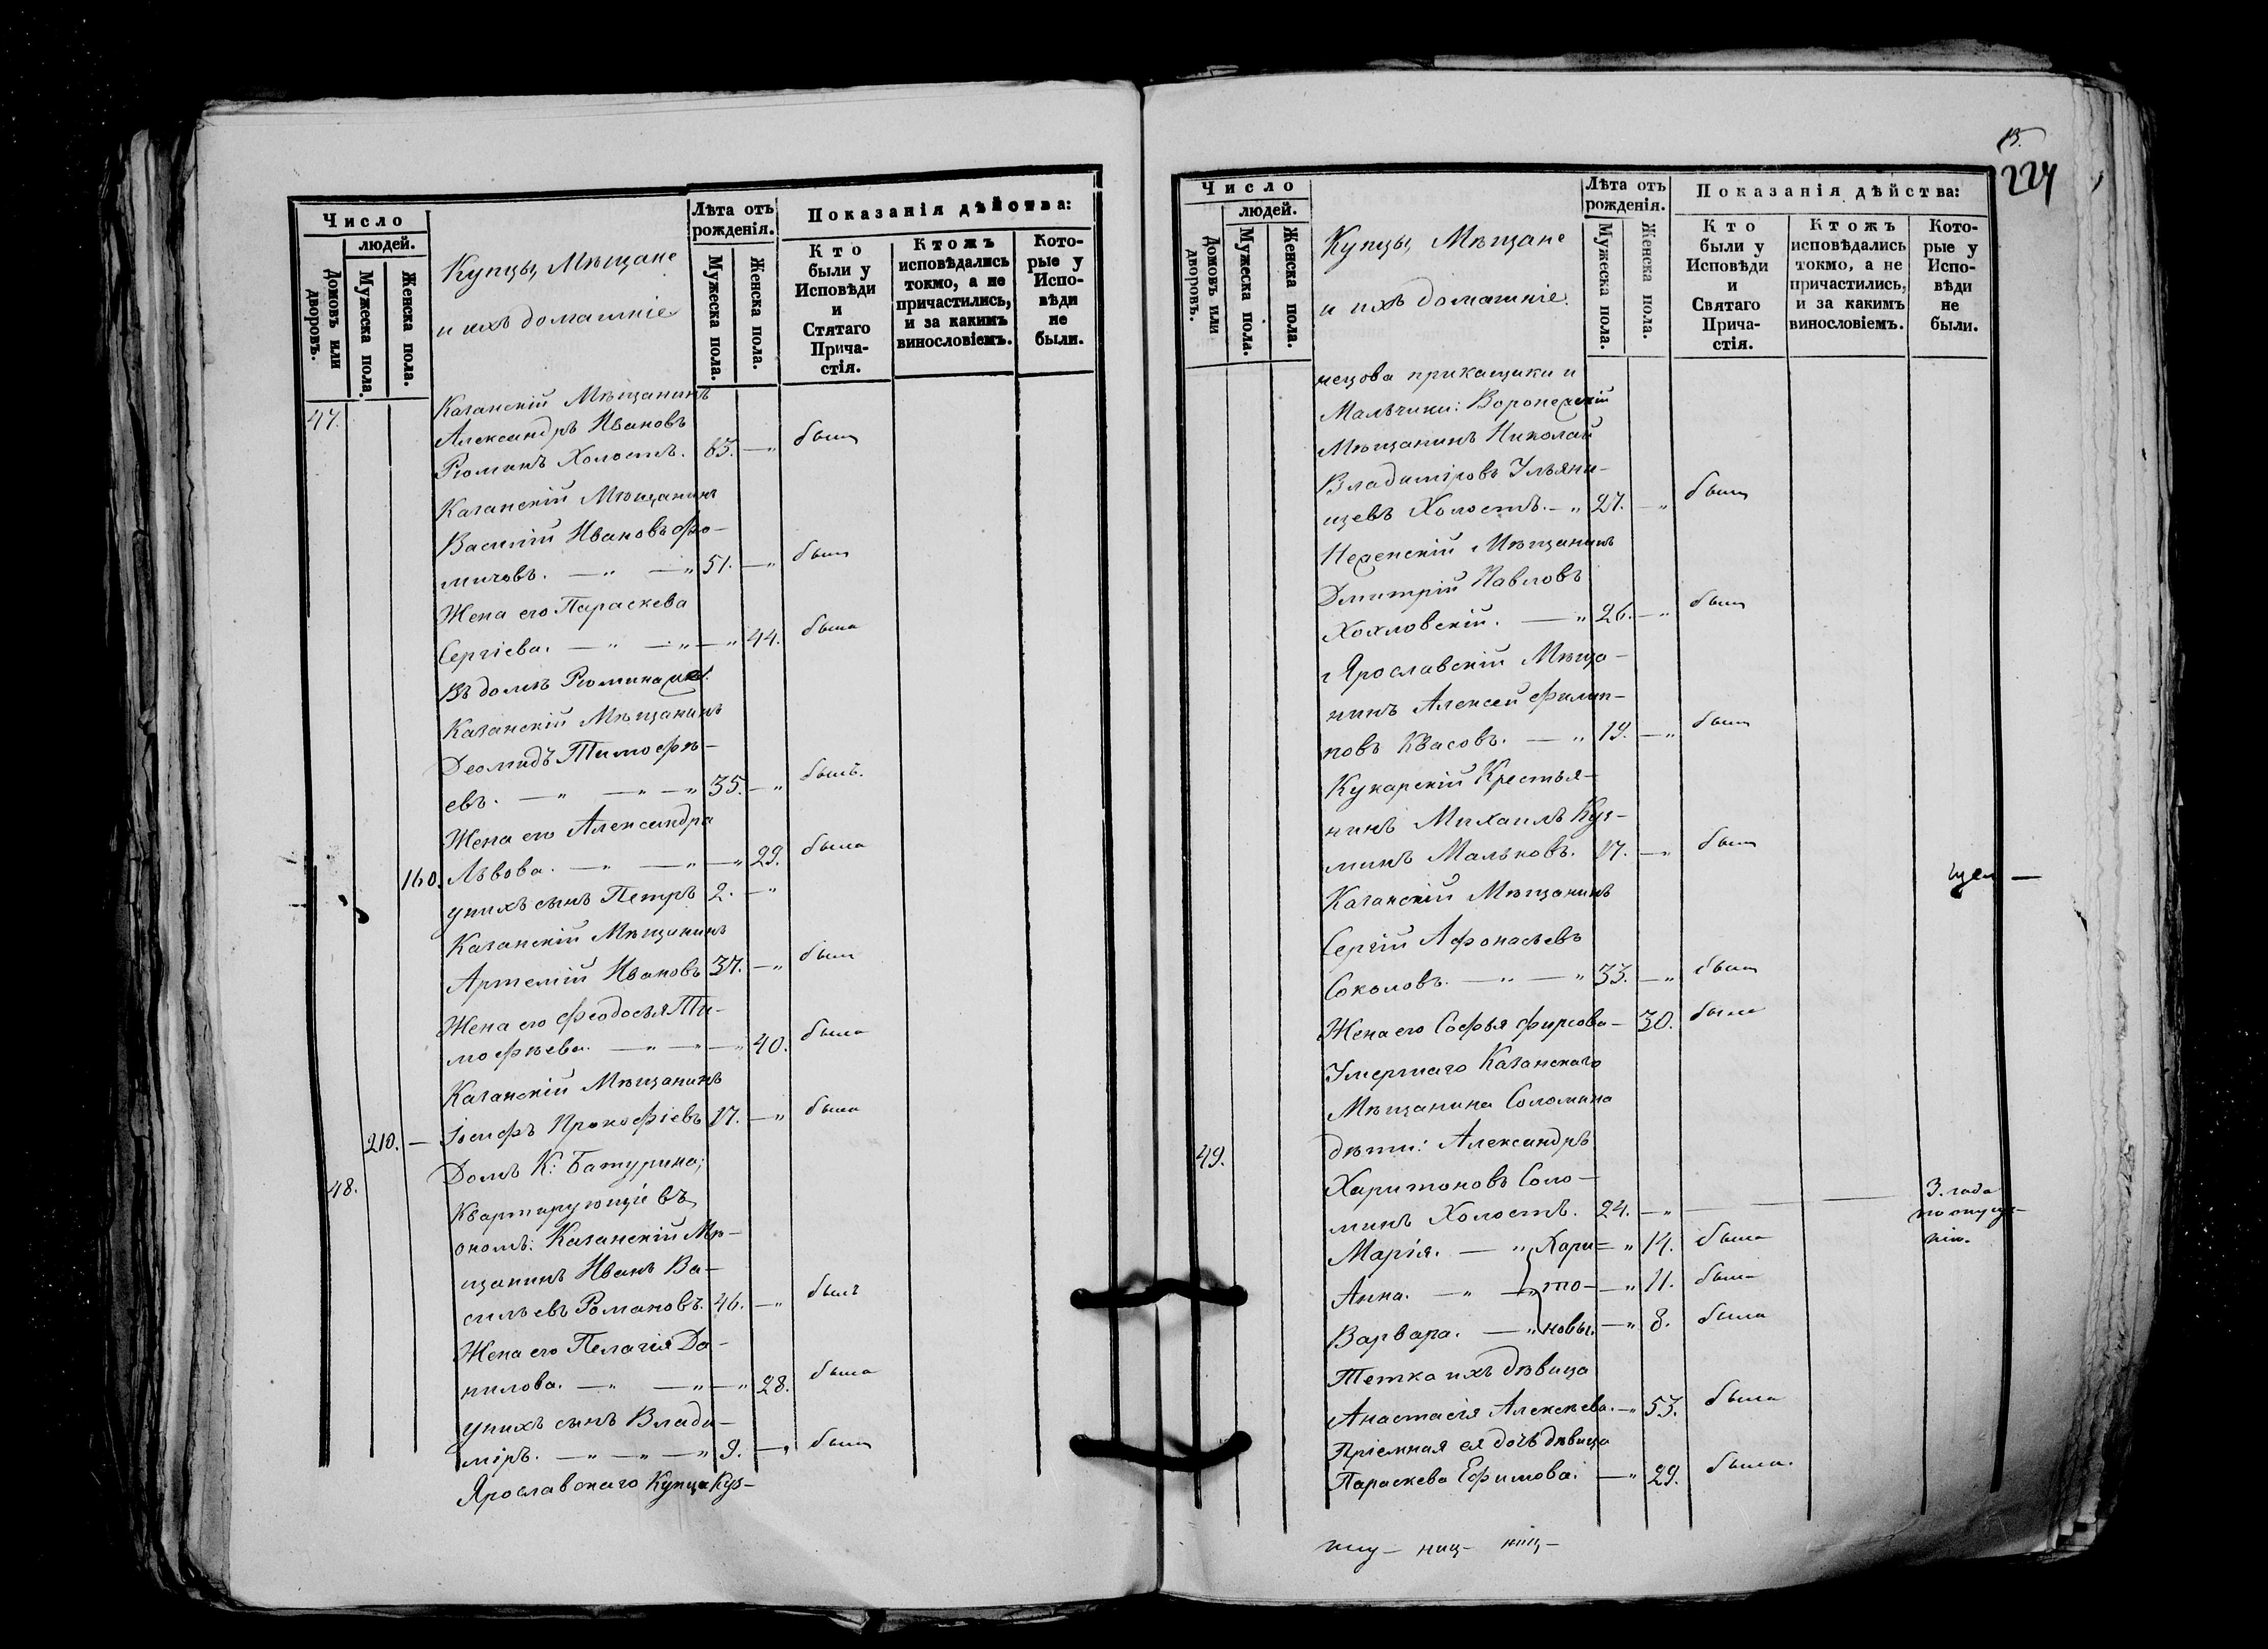 Число
людей.
Домовъ или дворовъ.
Мужеска пола.
Женска пола.
Купцы, Мѣщане
и ихъ домашніе
Лѣта отъ рожденія.
Мужеска пола.
Женска пола.
Показанія дѣйства:
Кто были у Исповѣди и Стятаго Прича-стія.
Ктожъ исповѣдались токмо, а не причастились, и за какимъ винословіемъ.
Кото-рые у Испо-вѣди не были.
47. Казанскій Мѣщанинъ
Александръ Ивановъ
Рюминъ Холостъ. 63. —„ былъ
Казанскій Мѣщанинъ
Василій Ивановъ Фо-
мичовъ. —„ —„ 51. —„ былъ
Жена его Параскева
Сергіева. —„ —„ —„ 44. была
Въ домѣ Рюмина
Казанскій Мѣщанинъ
Деомидъ Тимофѣ-
евъ. —„ —„ —„ 35. —„ былъ.
Жена его Александра
160. Львова. —„ —„ —„ 29. была
у нихъ сынъ Петръ 2. —„
Казанскій Мѣщанинъ
Артемій Ивановъ 37. —„ былъ
Жена его Феодосья Ти-
мофѣева. —„ —„ —„ 40. была
Казанскій Мѣщанинъ
210. — Іосифъ Прокофіевъ 17. —„ была
48. Домъ К: Батурина;
Квартирующіе въ
ономъ: Казанскій Мѣ-
щанинъ Иванъ Ва-
сильевъ Романовъ. 46. —„ былъ
Жена его Пелагія Да-
нилова. —„ —„ —„ 28. была
у нихъ сынъ Влади-
міръ. —„ —„ —„ 9. —„ былъ
Ярославскаго Купца Куз-
13.
224
Число
людей.
Домовъ или дворовъ.
Мужеска пола.
Женска пола.
Купцы, Мѣщане
и ихъ домашніе.
Лѣта отъ рожденія.
Мужеска пола.
Женска пола.
Показанія дѣйства:
Кто были у Исповѣди и Святаго Прича-стія.
Ктожъ исповѣдались токмо, а не причастились, и за какимъ винословіемъ.
Кото-рые у Испо-вѣди не были.
нецова прикащики и
Мальчики: Воронежскій
Мѣщанинъ Николай
Владиміровъ Ульяни-
щевъ Холостъ. —„ 27. —„ былъ
Неженскій Мѣщанинъ
Дмитрій Павловъ
Хохловскій. —„ 26. —„ былъ
Ярославскій Мѣща-
нинъ Алексей Филип-
повъ Квасовъ. —„ 19. —„ былъ
Кукарскій Крестья-
нинъ Михаилъ Куз-
минъ Мальковъ. 17. —„ былъ
Казанскій Мѣщанинъ
Сергій Афонасьевъ
Соколовъ. —„ —„ 33. —„ былъ
Жена его Софья Фирсова — 30. была
Умершаго Казанскаго
Мѣщанина Соломина
49. дѣти: Александръ
Харитоновъ Соло-
минъ Холостъ. 24. —„ — — 3. года
по опуще-
нію.
Марія. —„ Хари= „ 14. была
Анна. —„ —„ то- —„ 11. была
Варвара. —„ новы. —„ 8. была
Тетка ихъ дѣвица
Анастасія Алексѣева. —„ 53. была
Пріемная ея дочь дѣвица
Параскева Ефимова. —„ 29. была.